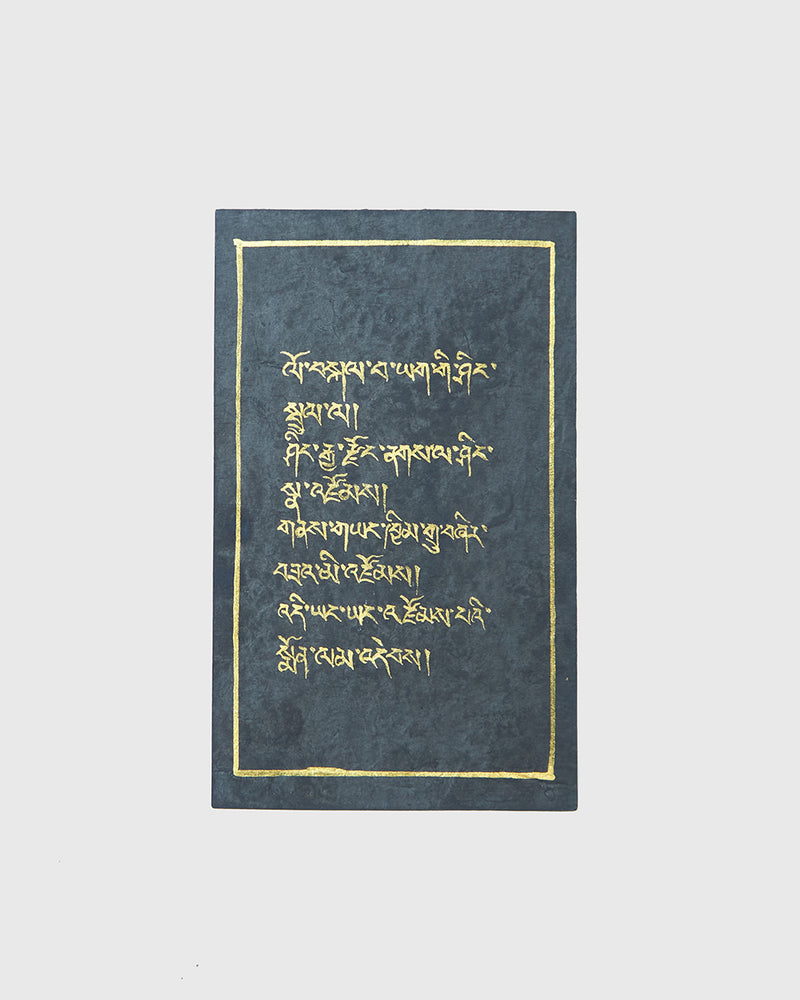 ལོ་བསྐལ་བ་ཡག་གི་ཤིང་
སྦྲུལ་ལ།
ཤིང་རྒྱ་རྫོང་ནགས་ལ་ཤིང་
སྣ་འཛོམས།
གནས་གཡང་ཁྱིམ་གྲུ་བཞིར་
བཟའ་མི་འཛོམས།
འདི་ཡང་ཡང་འཛོམས་པའི་
སྨོན་ལམ་འདེབས།